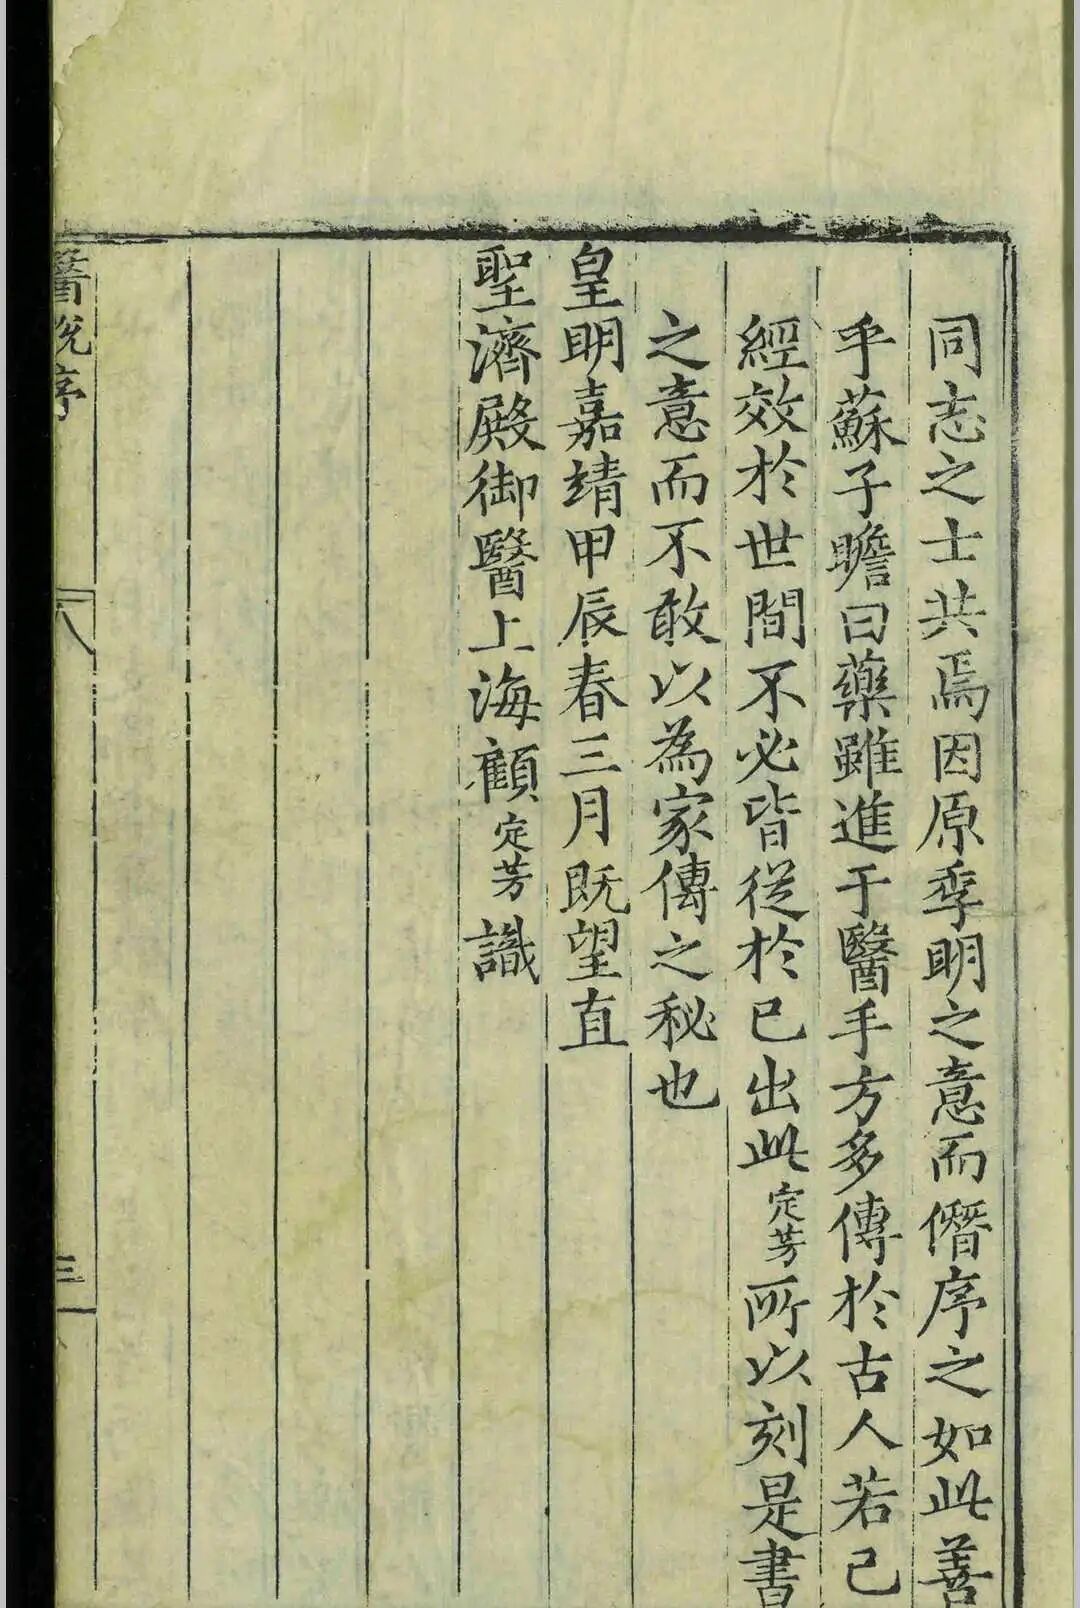 同志之士共焉因原季明之意而僭序之如此善
乎蘇子瞻曰藥雖進于醫手方多傳於古人若已
經效於世間不必皆從於已出此定芳所以刻是書
之意而不敢以為家傳之秘也
皇明嘉靖甲辰春三月既望直
聖濟殿御醫上海顧定芳識
醫說序
三